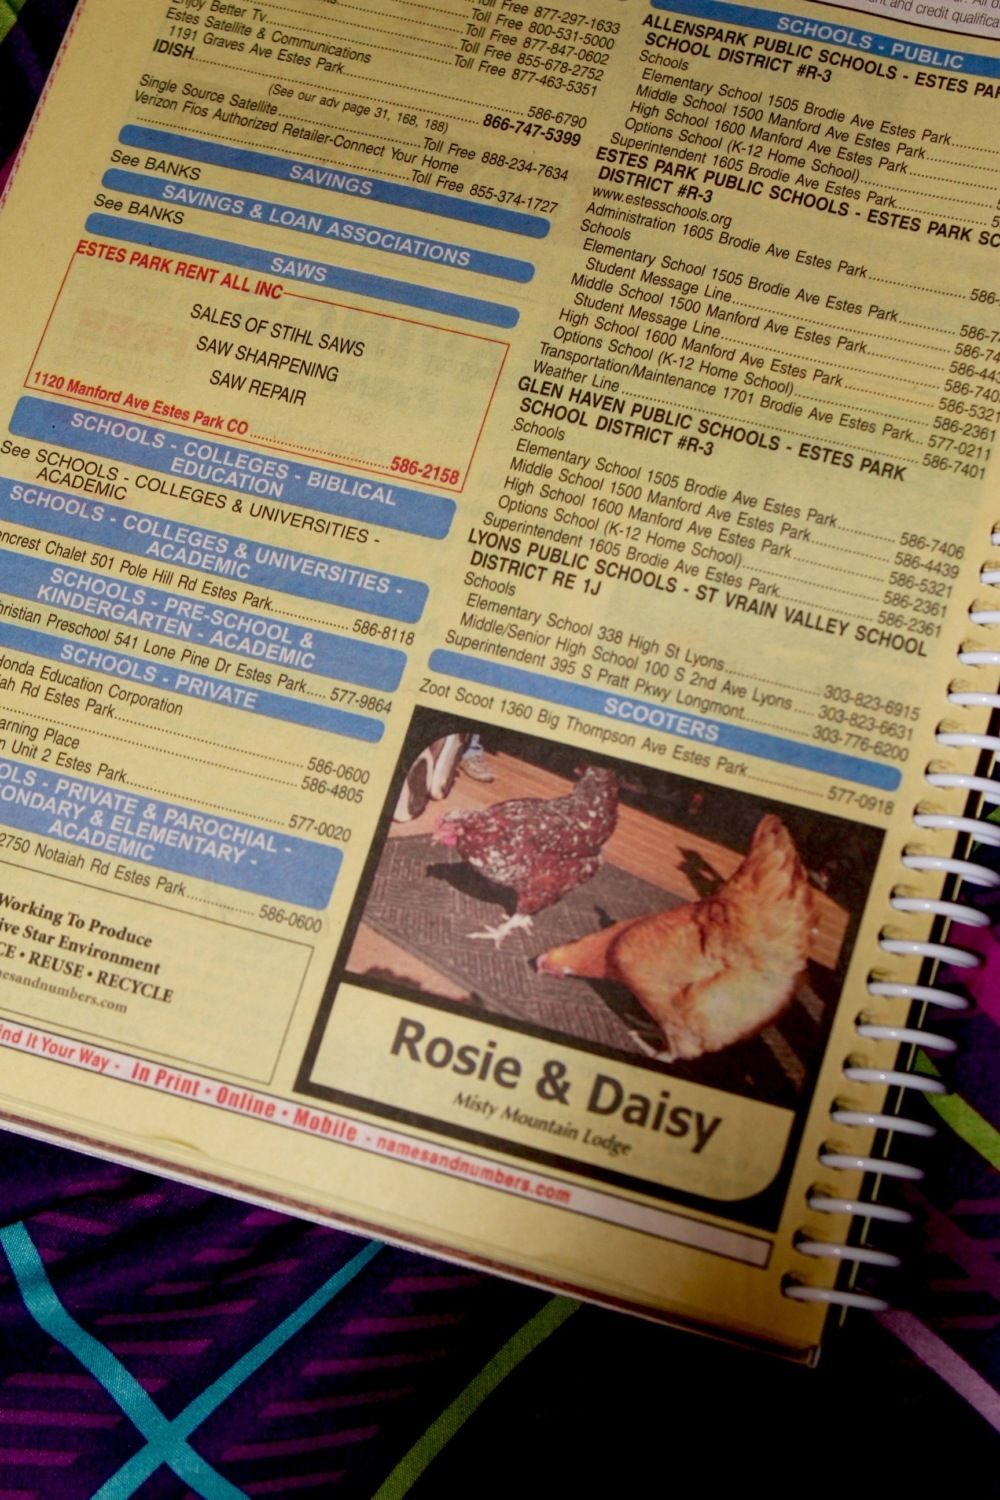 Toll Free 877-297-1633
Toll Free 800-531-5000
Enjoy Better Tv Toll Free 877-847-0602
Toll Free 855-678-2752
Estes Satellite & Communications Toll Free 877-463-5351
1191 Graves Ave Estes Park 586-6790
IDISH 866-747-5399
(See our adv page 31, 168, 188)
Single Source Satellite Toll Free 888-234-7634
Verizon Fios Authorized Retailer-Connect Your Home
Toll Free 855-374-1727
SAVINGS
See BANKS
SAVINGS & LOAN ASSOCIATIONS
See BANKS
SAWS
ESTES PARK RENT ALL INC
SALES OF STIHL SAWS
SAW SHARPENING
SAW REPAIR
1120 Manford Ave Estes Park CO 586-2158
SCHOOLS - COLLEGES - BIBLICAL
EDUCATION
See SCHOOLS - COLLEGES & UNIVERSITIES -
ACADEMIC
SCHOOLS - COLLEGES & UNIVERSITIES -
ACADEMIC
encrest Chalet 501 Pole Hill Rd Estes Park 586-8118
SCHOOLS - PRE-SCHOOL &
KINDERGARTEN - ACADEMIC
hristian Preschool 541 Lone Pine Dr Estes Park 577-9864
SCHOOLS - PRIVATE
Honda Education Corporation
ah Rd Estes Park 586-0600
586-4805
arning Place
n Unit 2 Estes Park 577-0020
OLS - PRIVATE & PAROCHIAL -
ONDARY & ELEMENTARY -
ACADEMIC
2750 Notaiah Rd Estes Park 586-0600
Working To Produce
ive Star Environment
CE • REUSE • RECYCLE
esandnumbers.com
ind It Your Way - In Print • Online • Mobile - namesandnumbers.com
nt and credit qualifica
SCHOOLS - PUBLIC
ALLENSPARK PUBLIC SCHOOLS - ESTES PAR
SCHOOL DISTRICT #R-3
Schools
Elementary School 1505 Brodie Ave Estes Park
Middle School 1500 Manford Ave Estes Park
High School 1600 Manford Ave Estes Park
Options School (K-12 Home School)
Superintendent 1605 Brodie Ave Estes Park
ESTES PARK PUBLIC SCHOOLS - ESTES PARK SC
DISTRICT #R-3
www.estesschools.org
Administration 1605 Brodie Ave Estes Park 586-
Schools
Elementary School 1505 Brodie Ave Estes Park 586-7
Student Message Line 586-74
Middle School 1500 Manford Ave Estes Park 586-443
Student Message Line 586-740
High School 1600 Manford Ave Estes Park 586-5321
Options School (K-12 Home School) 586-2361
Transportation/Maintenance 1701 Brodie Ave Estes Park 577-0211
Weather Line 586-7401
GLEN HAVEN PUBLIC SCHOOLS - ESTES PARK
SCHOOL DISTRICT #R-3
Schools
Elementary School 1505 Brodie Ave Estes Park 586-7406
Middle School 1500 Manford Ave Estes Park 586-4439
High School 1600 Manford Ave Estes Park 586-5321
Options School (K-12 Home School) 586-2361
Superintendent 1605 Brodie Ave Estes Park 586-2361
LYONS PUBLIC SCHOOLS - ST VRAIN VALLEY SCHOOL
DISTRICT RE 1J
Schools
Elementary School 338 High St Lyons 303-823-6915
Middle/Senior High School 100 S 2nd Ave Lyons 303-823-6631
Superintendent 395 S Pratt Pkwy Longmont 303-776-6200
SCOOTERS
Zoot Scoot 1360 Big Thompson Ave Estes Park 577-0918
Rosie & Daisy
Misty Mountain Lodge